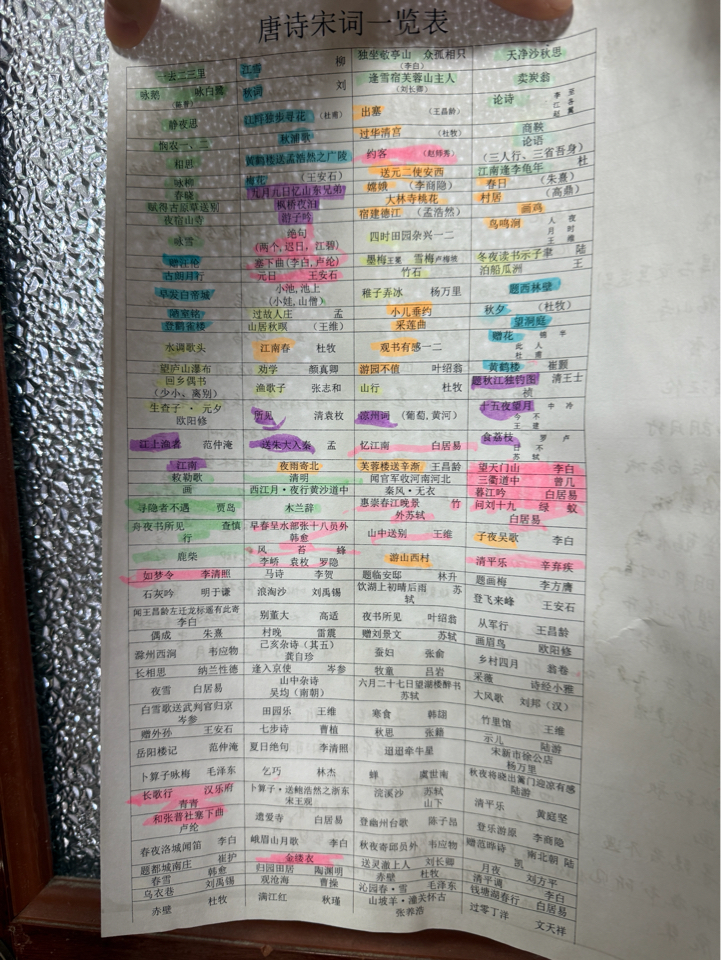 唐诗宋词一览表
一去二三里
江雪 柳
独坐敬亭山 众孤相只
（李白）
天净沙秋思
咏鹅 咏白鹭
秋词 刘
逢雪宿芙蓉山主人
（刘长卿）
卖炭翁
静夜思
江畔独步寻花 （杜甫）
出塞 （王昌龄）
论诗
悯农一、二
秋浦歌
过华清宫 （杜牧）
商鞅
论语
（三人行、三省吾身）
相思
黄鹤楼送孟浩然之广陵
约客 （赵师秀）
咏柳
梅花 （王安石）
送元二使安西
江南逢李龟年 杜
春晓
九月九日忆山东兄弟
嫦娥 （李商隐）
春日 （朱熹）
赋得古原草送别
枫桥夜泊
大林寺桃花
村居 （高鼎）
夜宿山寺
游子吟
宿建德江 （孟浩然）
画鸡
咏雪
绝句
（两个，迟日，江碧）
四时田园杂兴一二
鸟鸣涧
赠汪伦
塞下曲（李白，卢纶）
墨梅王冕 雪梅卢梅坡
冬夜读书示子聿 陆
古朗月行
元日 王安石
竹石
泊船瓜洲 王
早发白帝城
小池，池上
（小娃，山僧）
稚子弄冰 杨万里
题西林壁
陋室铭
过故人庄 孟
小儿垂钓
秋夕 （杜牧）
登鹳雀楼
山居秋暝 （王维）
采莲曲
望洞庭
水调歌头
江南春 杜牧
观书有感一二
赠花
望庐山瀑布
劝学 颜真卿
游园不值 叶绍翁
黄鹤楼 崔颢
回乡偶书
（少小、离别）
渔歌子 张志和
山行 杜牧
题秋江独钓图 清王士
祯
生查子·元夕
欧阳修
所见 清袁枚
凉州词 （葡萄，黄河）
十五夜望月
江上渔者 范仲淹
送朱大入秦 孟
忆江南 白居易
食荔枝
江南
夜雨寄北
芙蓉楼送辛渐 王昌龄
望天门山 李白
敕勒歌
清明
闻官军收河南河北
三衢道中 曾几
画
西江月·夜行黄沙道中
秦风·无衣
暮江吟 白居易
寻隐者不遇 贾岛
木兰辞
惠崇春江晚景 竹
外苏轼
问刘十九 绿 蚁
白居易
舟夜书所见 查慎
行
早春呈水部张十八员外
韩愈
山中送别 王维
子夜吴歌 李白
鹿柴
风 苔 蜂
李峤 袁枚 罗隐
游山西村
清平乐 辛弃疾
如梦令 李清照
马诗 李贺
题临安邸 林升
题画梅 李方膺
石灰吟 明于谦
浪淘沙 刘禹锡
饮湖上初晴后雨 苏
轼
登飞来峰 王安石
闻王昌龄左迁龙标遥有此寄
李白
别董大 高适
夜书所见 叶绍翁
从军行 王昌龄
偶成 朱熹
村晚 雷震
赠刘景文 苏轼
画眉鸟 欧阳修
滁州西涧 韦应物
己亥杂诗（其五）
龚自珍
蚕妇 张俞
乡村四月 翁卷
长相思 纳兰性德
逢入京使 岑参
牧童 吕岩
采薇 诗经小雅
夜雪 白居易
山中杂诗
吴均（南朝）
六月二十七日望湖楼醉书
苏轼
大风歌 刘邦（汉）
白雪歌送武判官归京
岑参
田园乐 王维
寒食 韩翃
竹里馆 王维
赠外孙 王安石
七步诗 曹植
秋思 张籍
示儿 陆游
岳阳楼记 范仲淹
夏日绝句 李清照
迢迢牵牛星
宋新市徐公店
杨万里
卜算子咏梅 毛泽东
乞巧 林杰
蝉 虞世南
秋夜将晓出篱门迎凉有感
陆游
长歌行 汉乐府
青青
卜算子·送鲍浩然之浙东
宋王观
浣溪沙 苏轼
山下
清平乐 黄庭坚
和张普社塞下曲
卢纶
遗爱寺 白居易
登幽州台歌 陈子昂
登乐游原 李商隐
春夜洛城闻笛 李白
峨眉山月歌 李白
秋夜寄邱员外 韦应物
赠范晔诗 南北朝 陆
凯
题都城南庄 崔护
金缕衣
送灵澈上人 刘长卿
月夜 刘方平
春雪 韩愈
归园田居 陶渊明
赤壁 杜牧
清平调 李白
乌衣巷 刘禹锡
观沧海 曹操
沁园春·雪 毛泽东
钱塘湖春行 白居易
赤壁 杜牧
满江红 秋瑾
山坡羊·潼关怀古
张养浩
过零丁洋 文天祥